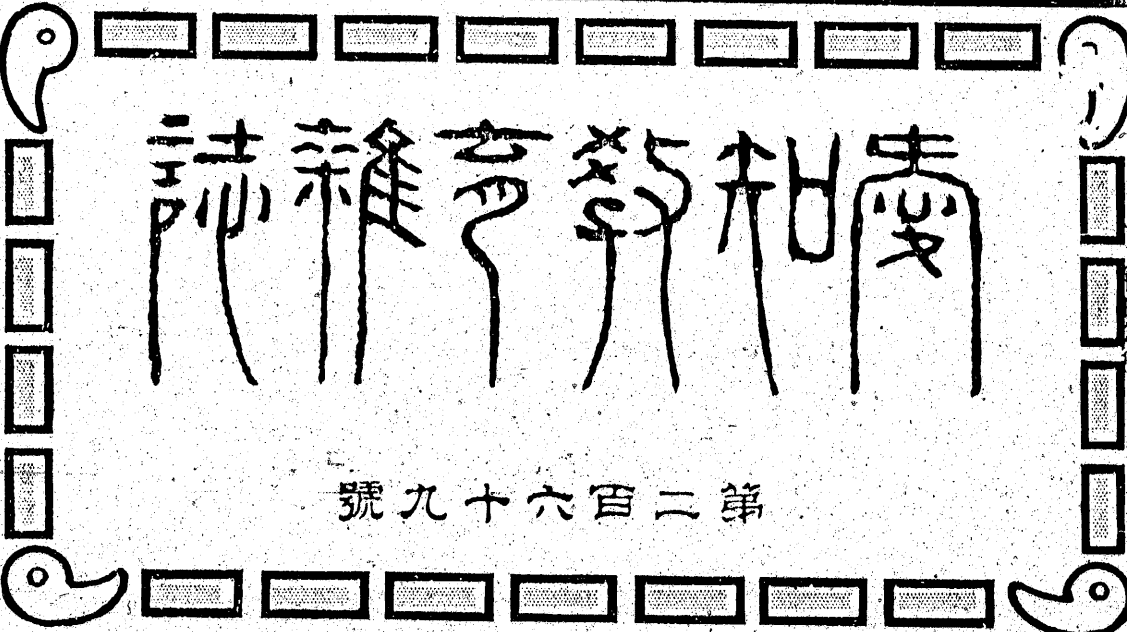 愛知教育雜誌
第二百六十九號